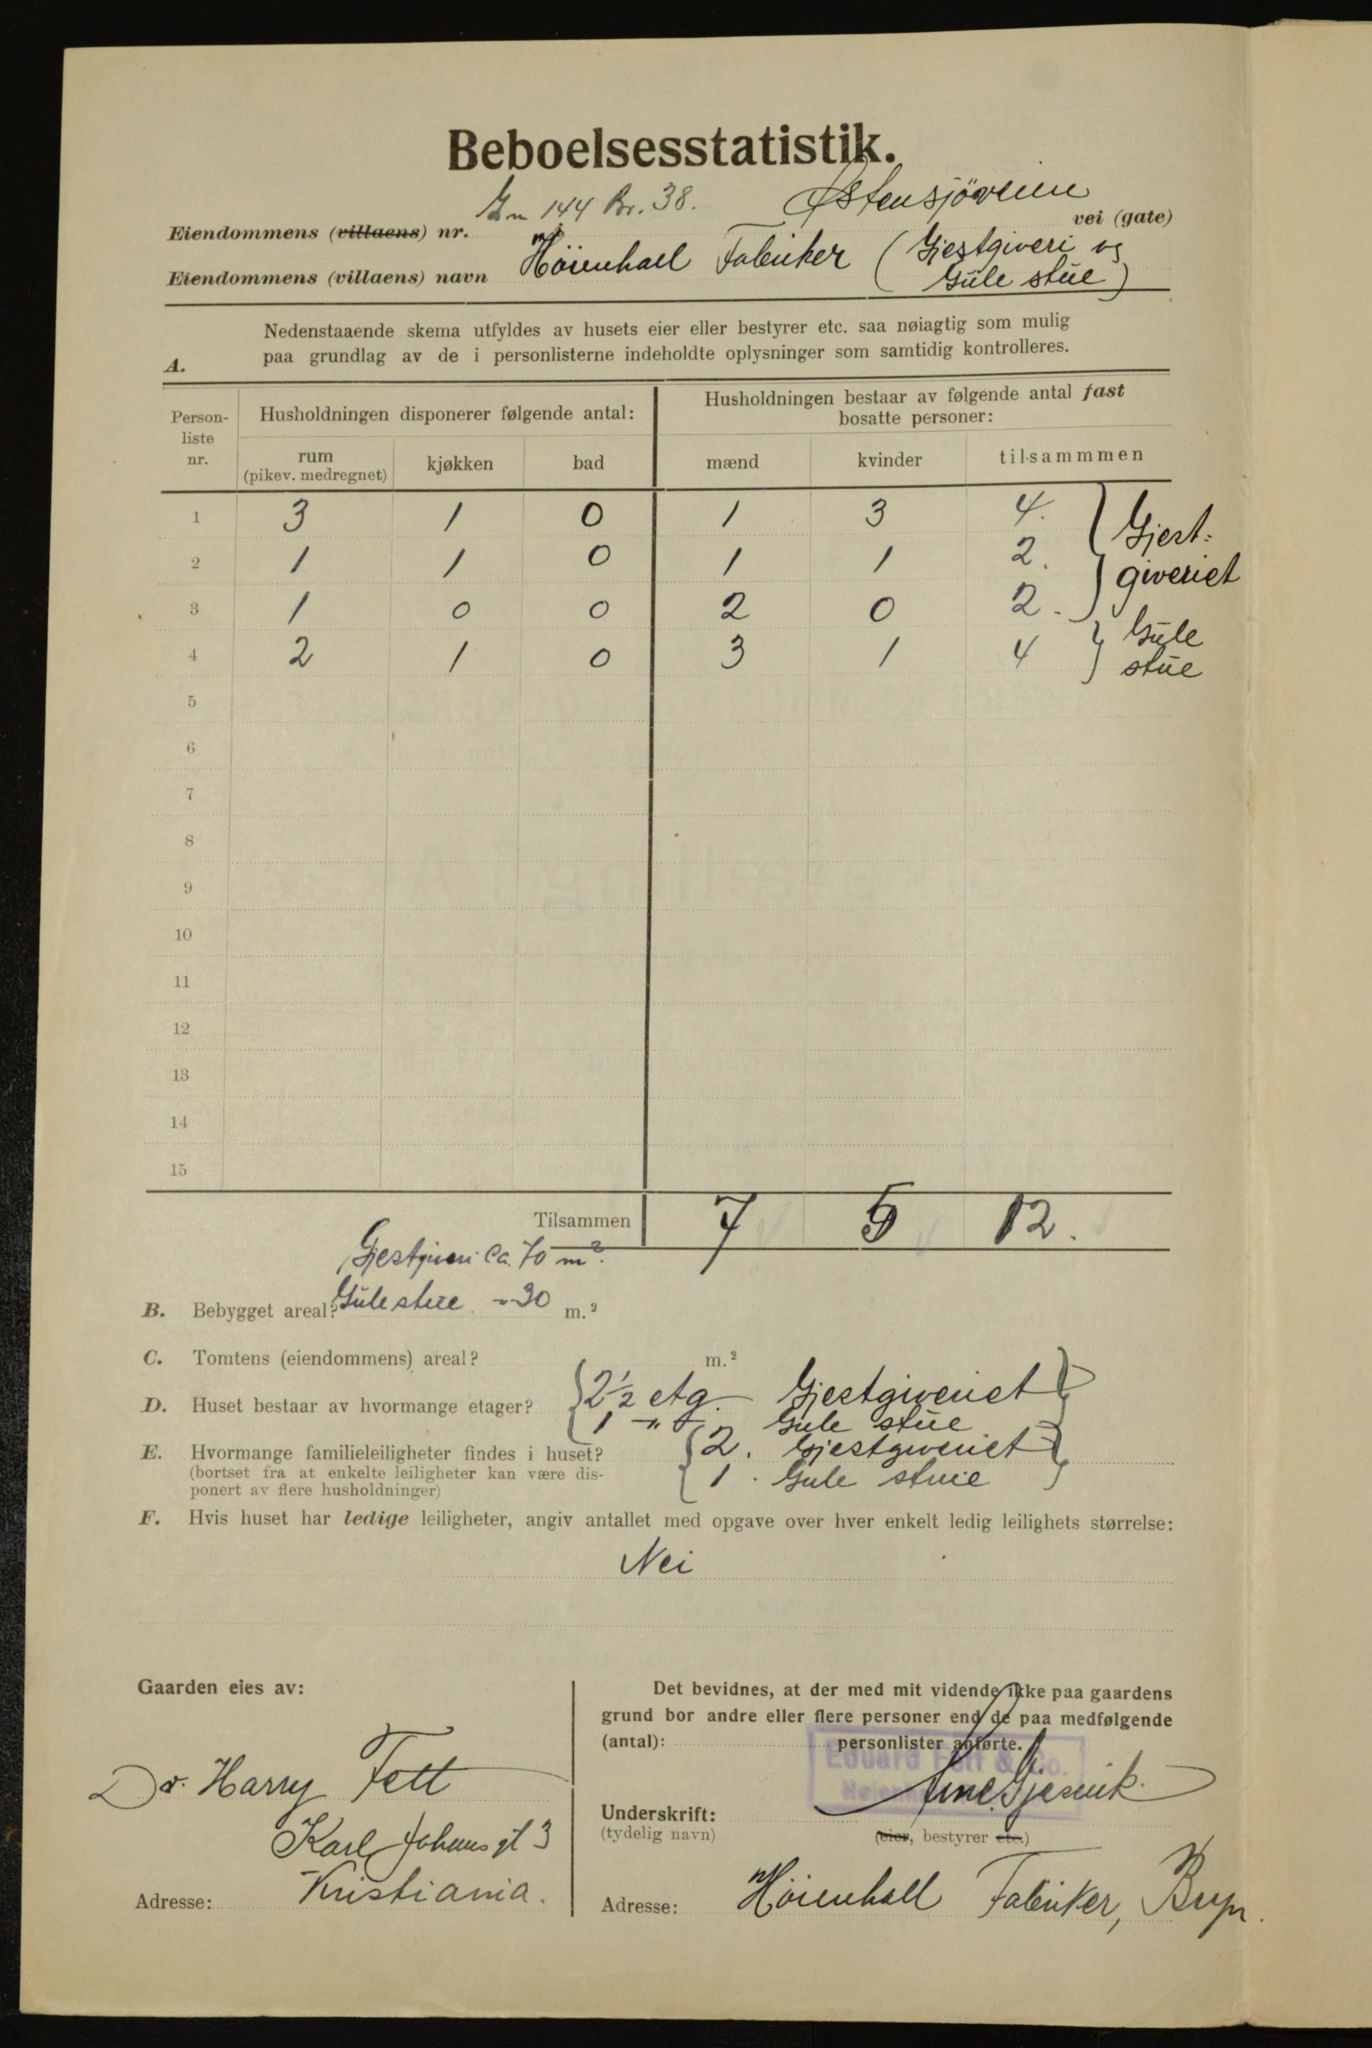 Beboelsesstatistik.
Gn 144 Br. 38. Østensjøveien
Eiendommens (villaens) nr. vei (gate)
Eiendommens (villaens) navn Høienhall Fabriker (Gjestgiveri og
Gule stue)
Nedenstaaende skema utfyldes av husets eier eller bestyrer etc. saa nøiagtig som mulig
A. paa grundlag av de i personlisterne indeholdte oplysninger som samtidig kontrolleres.
Person-liste nr. Husholdningen disponerer følgende antal: Husholdningen bestaar av følgende antal fast bosatte personer:
rum (pikev. medregnet) kjøkken bad mænd kvinder tilsammmen
1 3 1 0 1 3 4. Gjest-
2 1 1 0 1 1 2. giveriet
3 1 0 0 2 0 2.
4 2 1 0 3 1 4 Gule stue
5
6
7
8
9
10
11
12
13
14
15
Tilsammen 7 5 12.
Gjestgiveri ca. 70 m².
B. Bebygget areal? Gule stue " 30 m.²
C. Tomtens (eiendommens) areal? m.²
D. Huset bestaar av hvormange etager? 2½ etg. - Gjestgiveriet
1 " - Gule stue
E. Hvormange familieleiligheter findes i huset? 2. Gjestgiveriet
(bortset fra at enkelte leiligheter kan være dis- 1. Gule stue
ponert av flere husholdninger)
F. Hvis huset har ledige leiligheter, angiv antallet med opgave over hver enkelt ledig leilighets størrelse:
Nei
Gaarden eies av:
Dr. Harry Fett
Karl Johans gt 3
Adresse: Kristiania.
Det bevidnes, at der med mit vidende ikke paa gaardens
grund bor andre eller flere personer end de paa medfølgende
(antal): personlister anførte.
Eduard Fett & Co.
Underskrift: Arne Gjesvik.
(tydelig navn) (eier, bestyrer etc.)
Adresse: Høienhall Fabriker, Bryn.